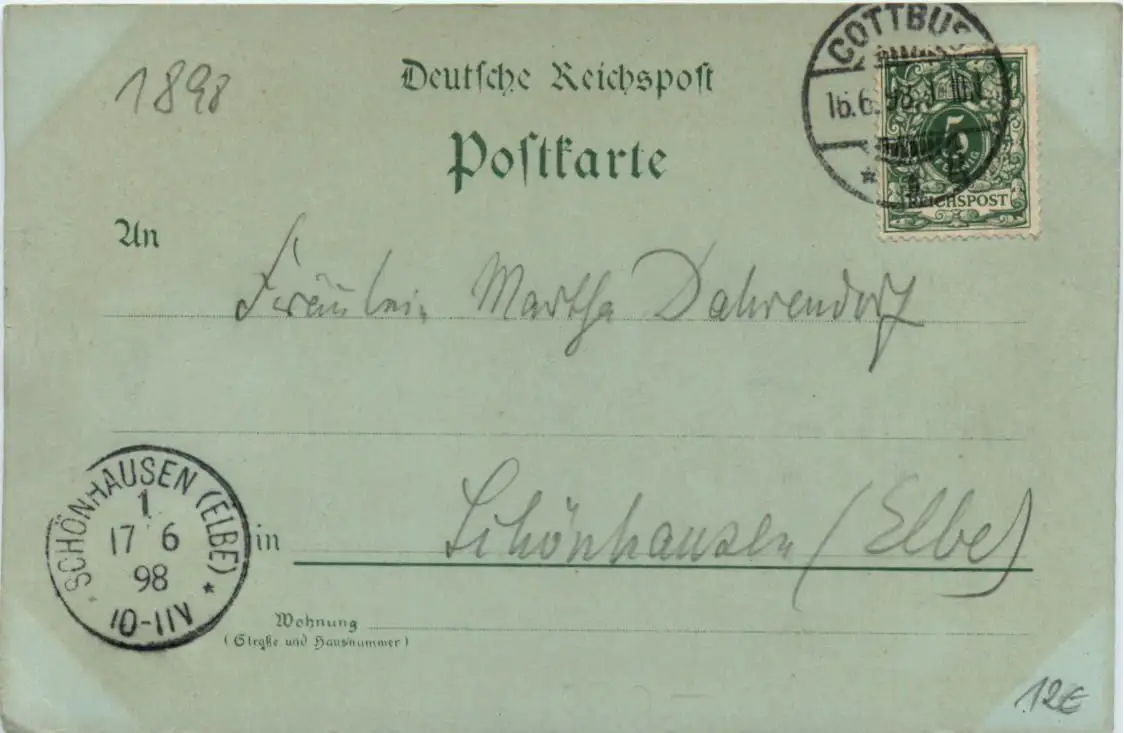 1898
Deutsche Reichspost
Postkarte
COTTBUS
16.6.98.
5
PFENNIG
REICHSPOST
An
Fräulein Martha Dahrendorf
SCHÖNHAUSEN (ELBE)
1
17 6
98
10-11V
in
Schönhausen (Elbe)
Wohnung
(Straße und Hausnummer)
12€